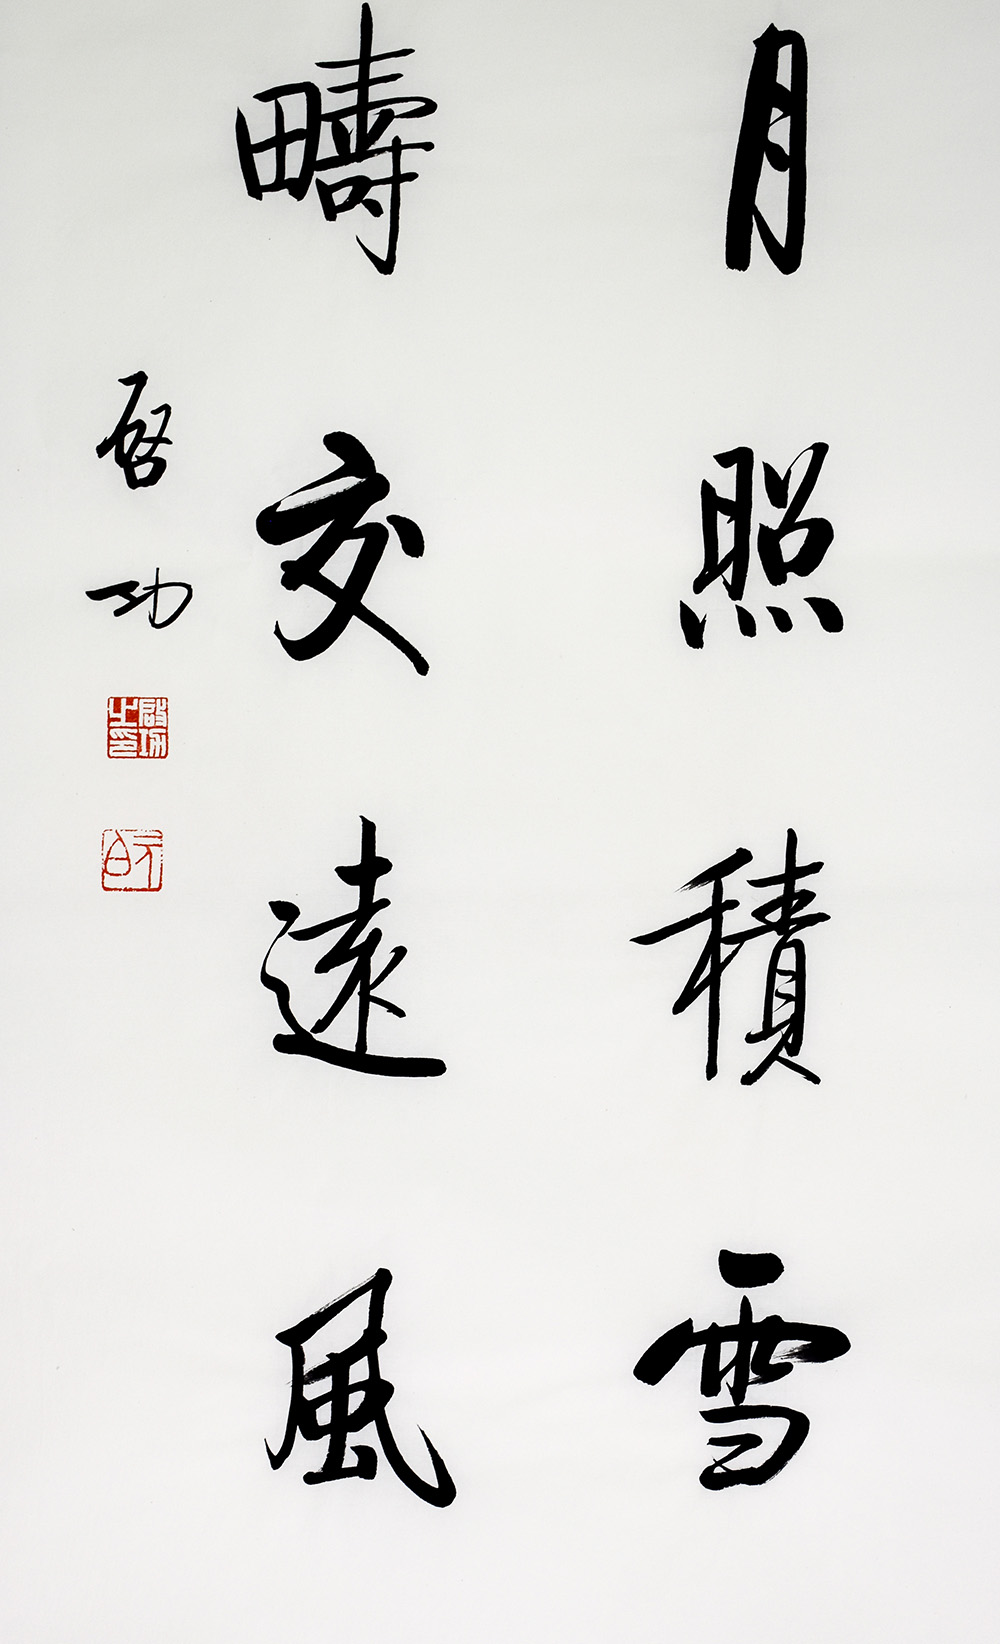 月照積雪
疇交遠風
啓功
啟功之印
元白